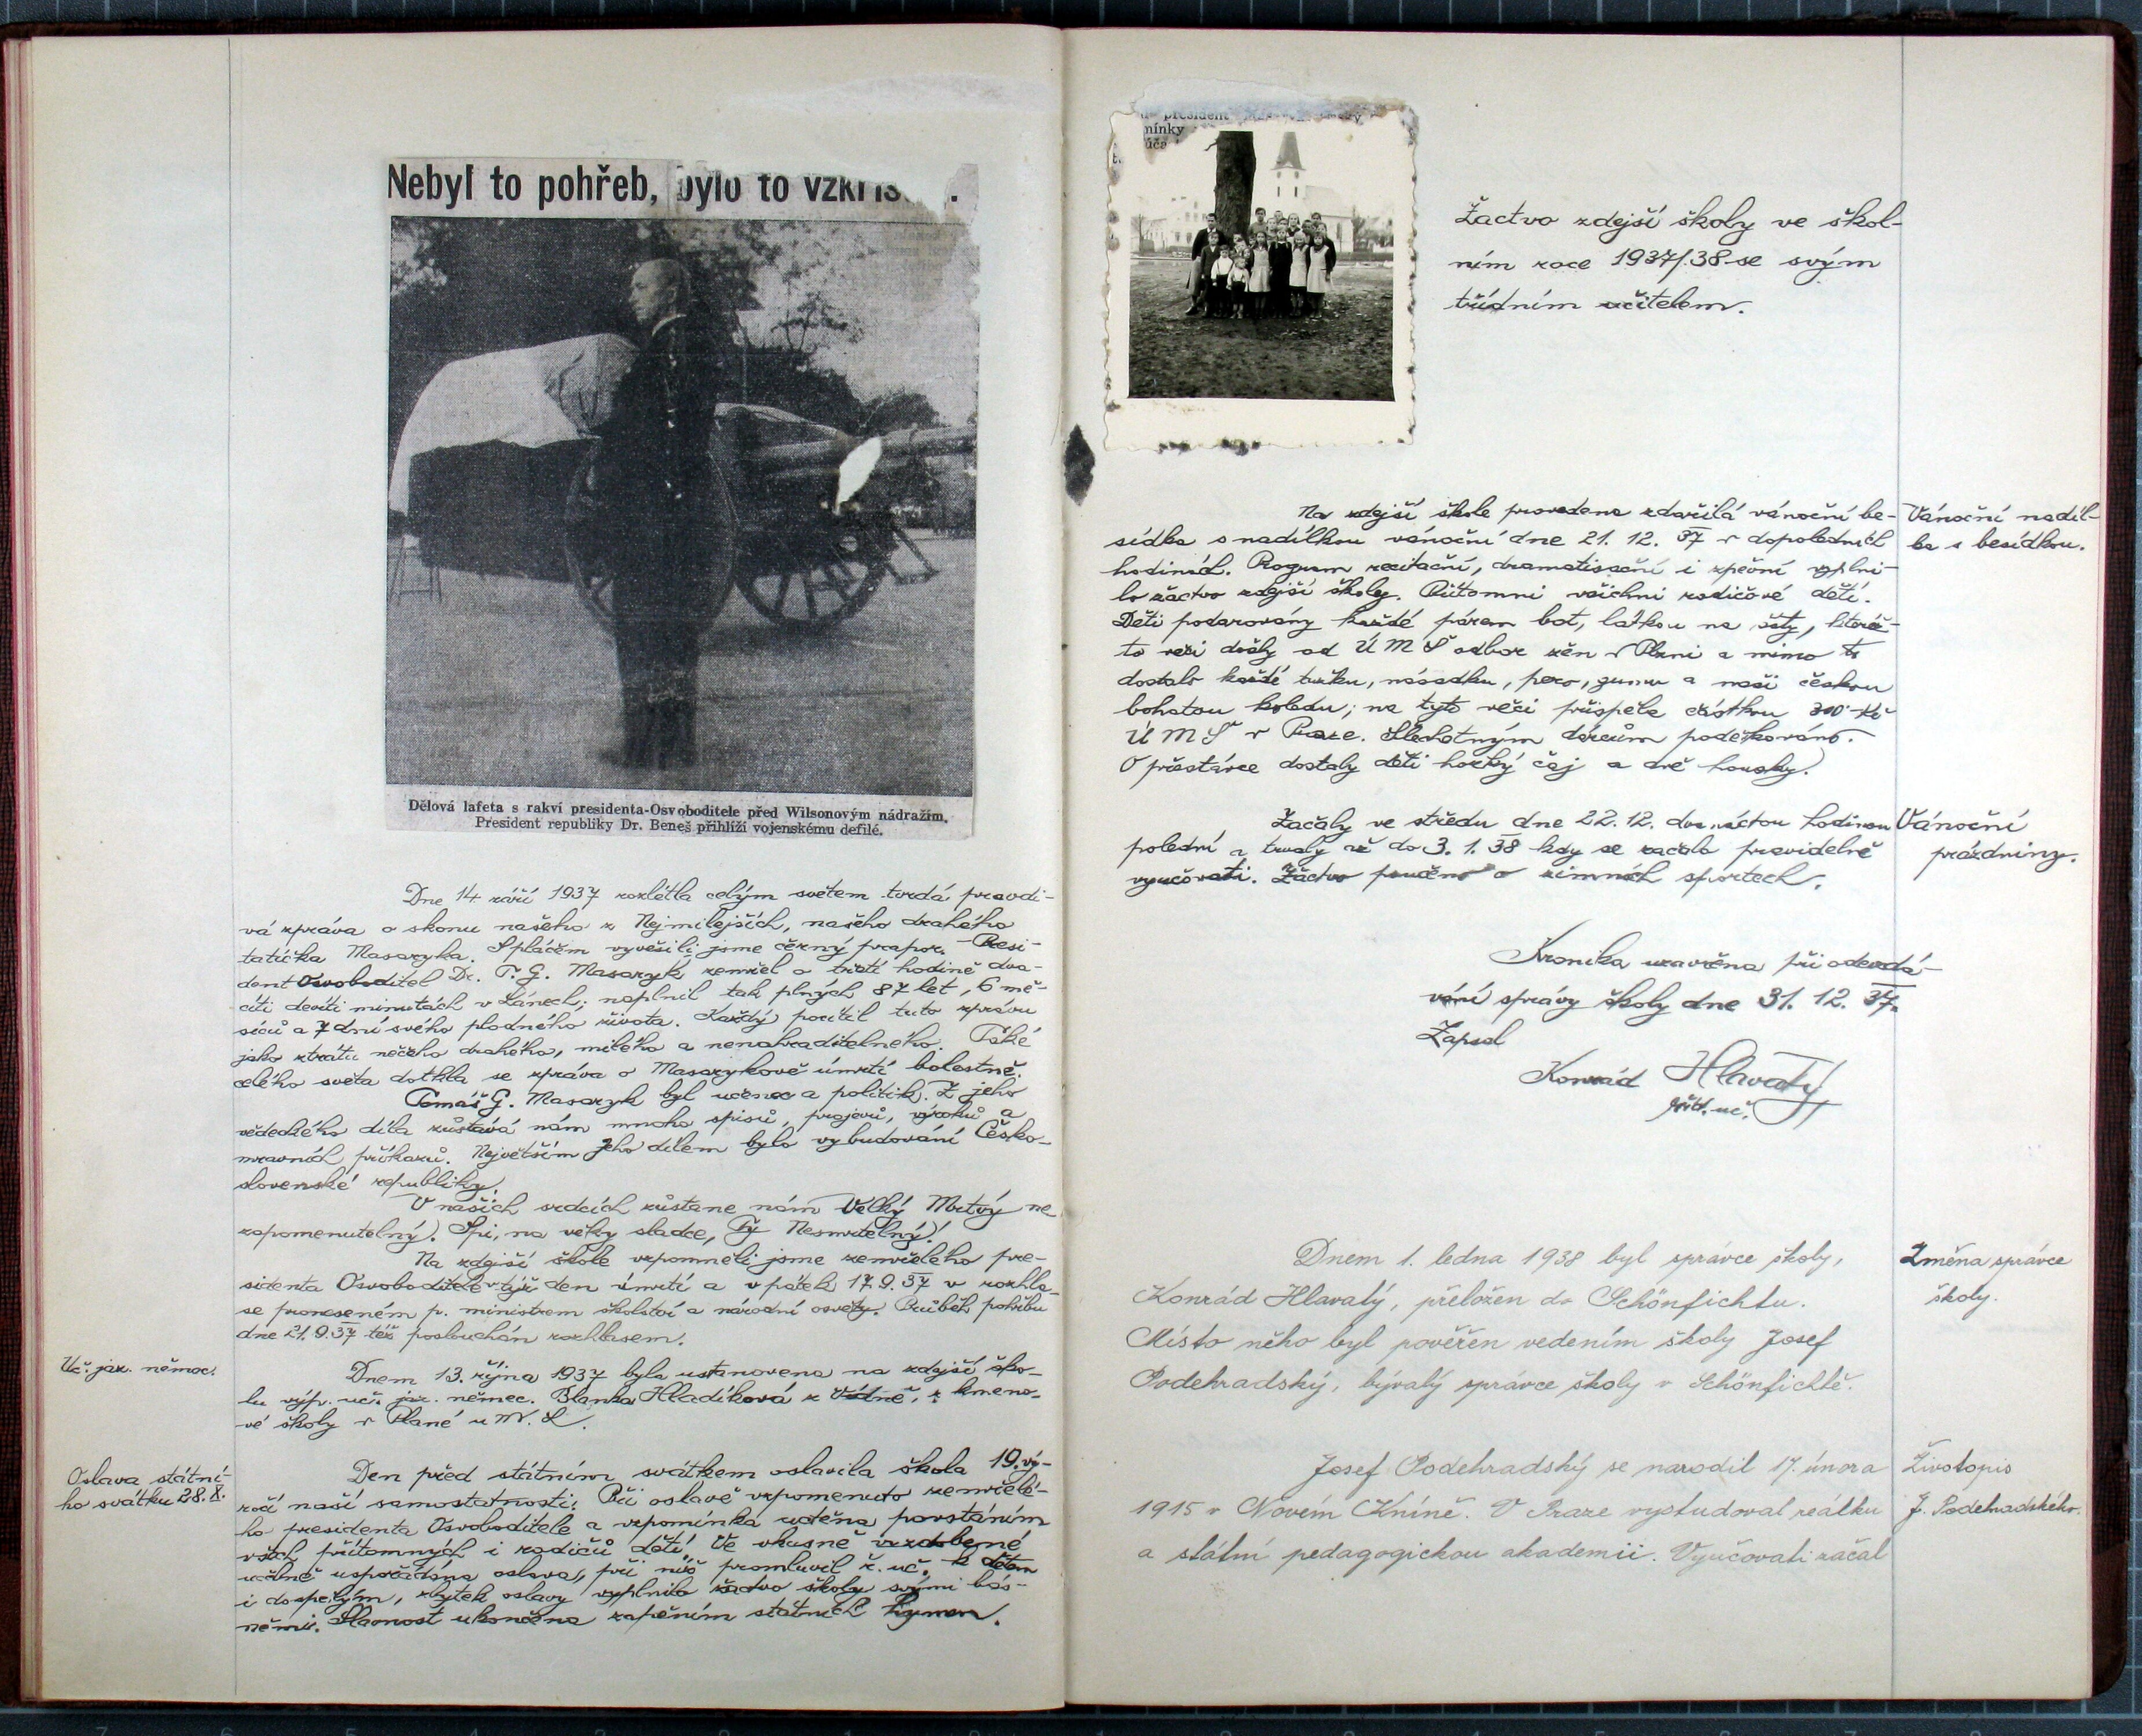 Nebyl to pohřeb, bylo to
Dělová lafeta s rakví presidenta-Osvoboditele před Wilsonovým nádražím.
President republiky Dr. Beneš přihlíží vojenskému defilé.
Dne 14 září 1937 rozlétla celým světem tvrdá pravdi-
vá zpráva o skonu našeho z Nejmilejších, našeho drahého
tatíčka Masaryka. S pláčem vyvěsili jsme černý prapor. - Presi-
dent Osvoboditel Dr. T. G. Masaryk zemřel o třetí hodině dva-
cíti devíti minutách v Lánech; naplnil tak plných 87 let, 6 mě-
síců a 7 dní svého plodného života. Každý pocítil tuto zprávu
jako ztrátu něčeho drahého, milého a nenahraditelného. Také
celého světa dotkla se zpráva o Masarykově úmrtí bolestně.
Tomáš G. Masaryk byl učenec a politik. Z jeho
vědeckého díla zůstává nám mnoho spisů, projevů, výroků a
mravních příkazů. Největším Jeho dílem bylo vybudování Česko-
slovenské republiky.
V našich srdcích zůstane nám Velký Mrtvý ne
zapomenutelný! Spi, na věky sladce, Ty Nesmrtelný!
Na zdejší škole vzpomněli jsme zemřelého pre-
sidenta Osvoboditele v týž den úmrtí a v pátek 17.9.37 v rozhla-
se proneseném p. ministrem školství a národní osvěty. Průběh pohřbu
dne 21.9.37 též poslouchán rozhlasem.
Uč. jaz. němec.
Dnem 13. října 1937 byla ustanovena na zdejší ško-
lu výp. uč. jaz. němec. Blanka Hladíková z kmeno-
vé školy v Plané u M. L.
Oslava státní-
ho svátku 28.X.
Den před státním svátkem oslavila škola 19. vý-
ročí naší samostatnosti. Při oslavě vzpomenuto zemřelé-
ho presidenta Osvoboditele a vzpomínka uctěna povstáním
všech přítomných i rodičů dětí. Ve vkusně vyzdobené
učebně uspořádána oslava, při níž promluvil ř. uč. k dětem
i dospělým, zbytek oslavy vyplnilo žactvo školy svými bás-
němi. Slavnost ukončena zapěním státních hymen.
president
mínky
Žactvo zdejší školy ve škol-
ním roce 1937/38 se svým
třídním učitelem.
Na zdejší škole provedena zdařilá vánoční be-
sídka s nadílkou vánoční dne 21. 12. 37 v dopoledních
hodinách. Program recitační, dramatisační i zpěvní vyplni-
lo žactvo zdejší školy. Přítomni všichni rodičové dětí.
Děti podarovány každé párem bot, látkou na šaty, kteréž-
to věci došly od Ú M Š odbor žen v Plzni a mimo to
dostalo každé tužku, násadku, pero, gumu a naši českou
bohatou koledu; na tyto věci přispěla částkou 300 Kč
Ú M Š v Praze. Šlechetným dárcům poděkováno.
O přestávce dostaly děti horký čaj a dvě housky.
Vánoční nadíl-
ka s besídkou.
Začaly ve středu dne 22. 12. dvanáctou hodinou
polední a trvaly až do 3. 1. 38 kdy se začalo pravidelně
vyučovati. Žactvo poučeno o zimních sportech.
Vánoční
prázdniny.
Kronika uzavřena při odevzdá-
vání správy školy dne 31. 12. 37.
Zapsal
Konrád Hlavatý
říd. uč.
Dnem 1. ledna 1938 byl správce školy,
Konrád Hlavatý, přeložen do Schönfichtu.
Místo něho byl pověřen vedením školy Josef
Podehradský, bývalý správce školy v Schönfichtě.
Změna správce
školy.
Josef Podehradský se narodil 17. února
1915 v Novém Kníně. V Praze vystudoval reálku
a státní pedagogickou akademii. Vyučovati začal
Životopis
J. Podehradského.